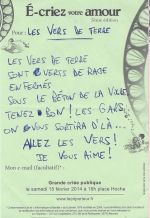 É-criez votre amour
5ème édition
Pour : LES VERS DE TERRE
LES VERS DE TERRE
SONT OUVERTS DE RAGE
ENFERMÉS
SOUS LE BÉTON DE LA VILLE
TENEZ BON ! LES GARS
ON VOUS SORTIRA DE LÀ...
ALLEZ LES VERS !
JE VOUS AIME !
Mon e-mail (facultatif)* :
Grande criée publique
le samedi 15 février 2014 à 16h place Hoche